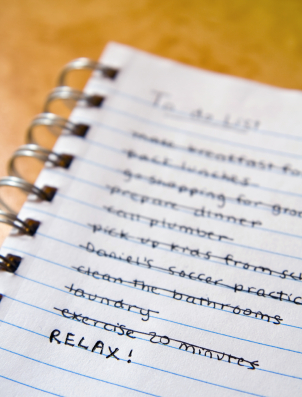 To do List
make breakfast fo
pack lunches
go shopping for gro
prepare dinner
call plumber
pick up kids from sc
Daniel's soccer practic
clean the bathrooms
laundry
exercise 20 minutes
RELAX!